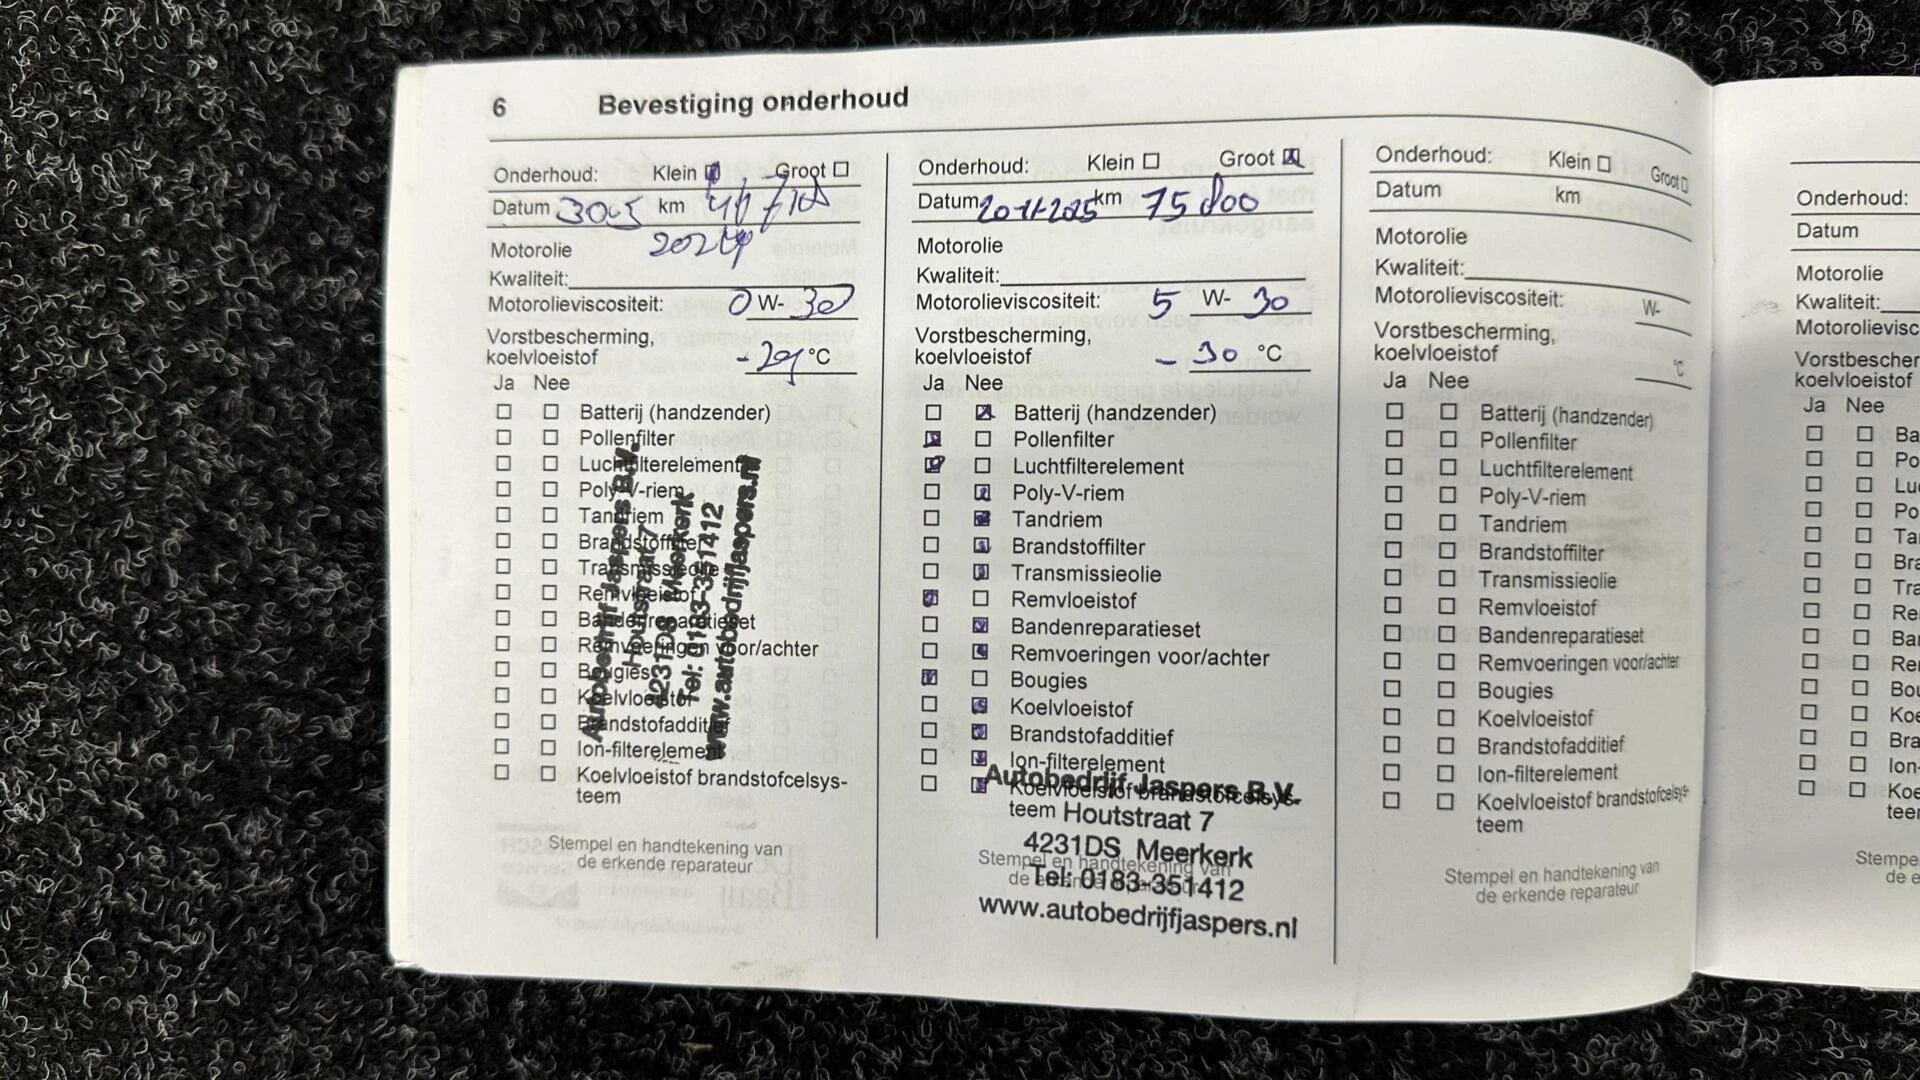 6 Bevestiging onderhoud
Onderhoud: Klein Groot
Datum 30-5 km
2024
Motorolie
Kwaliteit:
Motorolieviscositeit: 0 W- 30
Vorstbescherming,
koelvloeistof - 29 °C
Ja Nee
Batterij (handzender)
Pollenfilter
Luchtfilterelement
Poly-V-riem
Tandriem
Brandstoffilter
Transmissieolie
Remvloeistof
Bandenreparatieset
Remvoeringen voor/achter
Bougies
Koelvloeistof
Brandstofadditief
Ion-filterelement
Koelvloeistof brandstofcelsys-
teem
Autobedrijf Jaspers B.V.
Houtstraat 7
4231DS Meerkerk
Tel: 0183-351412
www.autobedrijfjaspers.nl
Stempel en handtekening van
de erkende reparateur
Onderhoud: Klein Groot
Datum 20-11-2025 km 75800
Motorolie
Kwaliteit:
Motorolieviscositeit: 5 W- 30
Vorstbescherming,
koelvloeistof - 30 °C
Ja Nee
Batterij (handzender)
Pollenfilter
Luchtfilterelement
Poly-V-riem
Tandriem
Brandstoffilter
Transmissieolie
Remvloeistof
Bandenreparatieset
Remvoeringen voor/achter
Bougies
Koelvloeistof
Brandstofadditief
Ion-filterelement
Koelvloeistof brandstofcelsys-
teem
Autobedrijf Jaspers B.V.
Houtstraat 7
4231DS Meerkerk
Tel: 0183-351412
www.autobedrijfjaspers.nl
Stempel en handtekening van
de erkende reparateur
Onderhoud: Klein Groot
Datum km
Motorolie
Kwaliteit:
Motorolieviscositeit: W-
Vorstbescherming,
koelvloeistof °C
Ja Nee
Batterij (handzender)
Pollenfilter
Luchtfilterelement
Poly-V-riem
Tandriem
Brandstoffilter
Transmissieolie
Remvloeistof
Bandenreparatieset
Remvoeringen voor/achter
Bougies
Koelvloeistof
Brandstofadditief
Ion-filterelement
Koelvloeistof brandstofcelsys-
teem
Stempel en handtekening van
de erkende reparateur
Onderhoud:
Datum
Motorolie
Kwaliteit:
Motorolievisc
Vorstbescher
koelvloeistof
Ja Nee
Ba
Po
Lu
Po
Ta
Bra
Tra
Re
Bar
Rer
Bou
Koe
Bra
Ion-
Koe
teer
Stempe
de e